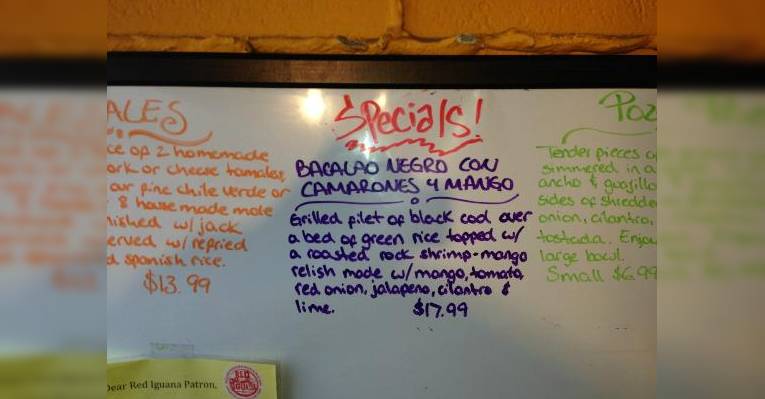 ALES
ce of 2 homemade
ork or cheese tamales
our fine chile verde or
& house made mole
nished w/ jack
erved w/ refried
d spanish rice.
$13.99
Specials!
BACALAO NEGRO CON
CAMARONES Y MANGO
Grilled filet of black cod over
a bed of green rice topped w/
a roasted rock shrimp-mango
relish made w/ mango, tomato,
red onion, jalapeno, cilantro &
lime. $17.99
Poz
Tender pieces o
simmered in a
ancho & guajillo
sides of shredde
onion, cilantro,
tostada. Enjoy
large bowl.
Small $6.99
Dear Red Iguana Patron,
RED
IGUANA